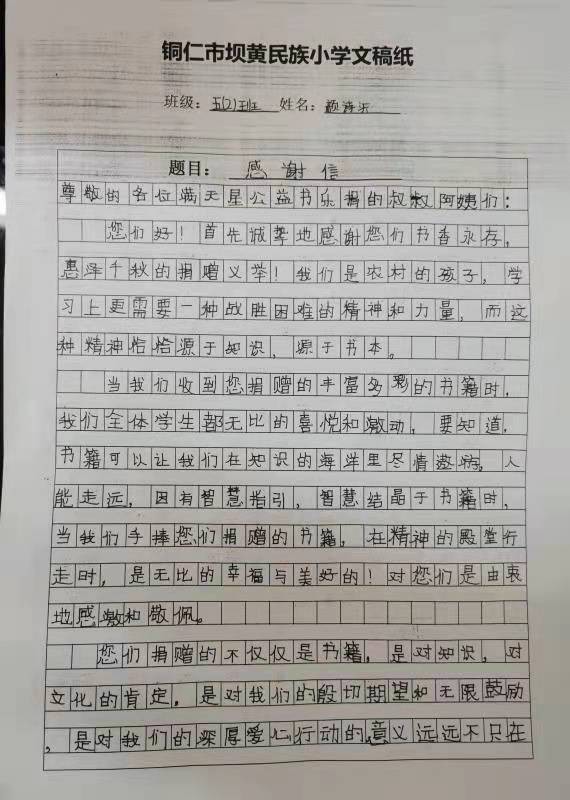 铜仁市坝黄民族小学文稿纸
班级：五(2)班 姓名：
题目： 感谢信
尊敬的各位满天星公益书乐捐的叔叔阿姨们：
您们好！首先诚挚地感谢您们书香永存，
惠泽千秋的捐赠义举！我们是农村的孩子，学
习上更需要一种战胜困难的精神和力量，而这
种精神恰恰源于知识，源于书本。
当我们收到您捐赠的丰富多彩的书籍时，
我们全体学生都无比的喜悦和激动，要知道，
书籍可以让我们在知识的海洋里尽情遨，人
能走远，因有智慧指引，智慧结晶于书籍时，
当我们手捧您们捐赠的书籍，在精神的殿堂行
走时，是无比的幸福与美好的！对您们是由衷
地感激和敬佩。
您们捐赠的不仅仅是书籍，是对知识，对
文化的肯定，是对我们的殷切期望和无限鼓励
，是对我们的深厚爱心行动的意义远远不只在